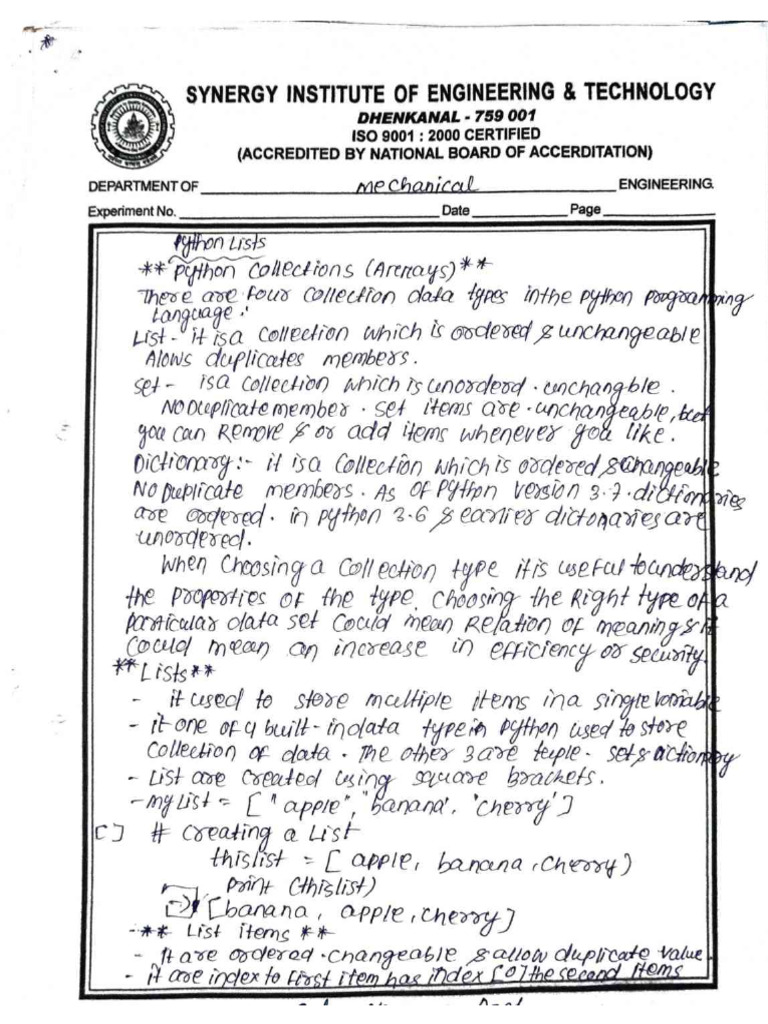 SYNERGY INSTITUTE OF ENGINEERING & TECHNOLOGY
DHENKANAL - 759 001
ISO 9001 : 2000 CERTIFIED
(ACCREDITED BY NATIONAL BOARD OF ACCERDITATION)
DEPARTMENT OF Mechanical ENGINEERING.
Experiment No. Date Page
Python Lists
** Python Collections (Arrays)**
There are four collection data types in the python programming
Language.:
List - it is a collection which is ordered & unchangeable
Alows duplicates members.
Set - is a collection which is unorderd . unchangble .
No Duplicate member . set items are . unchangeable, but
you can Remove & or add items whenever you like.
Dictionary:- it is a Collection which is ordered & changeable
No Duplicate members. As of Python version 3.7. dictionaries
are ordered. in python 3.6 & earlier dictonaries are
unordered.
When Choosing a Collection type it is useful to understand
the Properties of the type. Choosing the Right type of a
particular data set Could mean Relation of meaning & it
Could mean an increase in efficiency or security.
** Lists**
- it used to store multiple items in a single variable
- it one of 4 built-in data type in python used to store
Collection of data . The other 3 are tuple - set & dictionary
- List are created using square brackets.
- my List = [ "apple", "banana', 'cherry']
[] # Creating a List
thislist = [ apple, banana, Cherry)
Print (thislist)
[banana, apple, cherry]
-** List items **
- It are ordered . changeable & allow duplicate value.
- it are index to First item has index [0] the second items